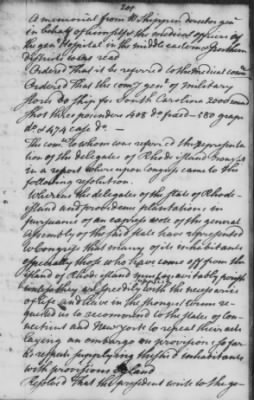 205
A memorial from W Shippen director gen^l
in behalf of himself & the medical officers of
the gen Hospital in the middle eastern & Northern
districts was read
Ordered That it be referred to the medical com^ee
Ordered That the com^y gen^l of military
stores do ship for South Carolina 2000 round
shot three pounders 408 d^o fixed - 580 grape
d^o & 474 case d^o -
The com^ee to whom was referred the representa
tion of the delegates of Rhode island brought
in a report whereupon Congress came to the
following resolution.
Whereas the delegates of the state of Rhode
island and providence plantations in
pursuance of an express vote of the general
Assembly of the said state have represented
to Congress that many of its inhabitants
especially those who have come off from the
island of Rhode island must inevitably perish
unless they are speedily supplied with the necessaries
of life and have in the strongest terms re-
quested us to recommend to the states of Con-
necticut and New york to repeal their acts
laying an embargo on provisions so far
as respects supplying the said inhabitants
with provisions by land
Resolved That the president write to the go-